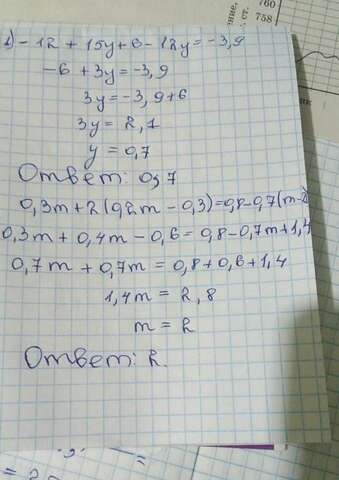 760
ст. 758
1) -12 + 15y + 6 - 12y = -3,9
-6 + 3y = -3,9
3y = -3,9+6
3y = 2,1
y = 0,7
Ответ: 0,7
0,3m + 2(0,2m - 0,3) = 0,8 - 0,7(m-2)
0,3m + 0,4m - 0,6 = 0,8 - 0,7m + 1,4
0,7m + 0,7m = 0,8 + 0,6 + 1,4
1,4m = 2,8
m = 2
Ответ: 2.